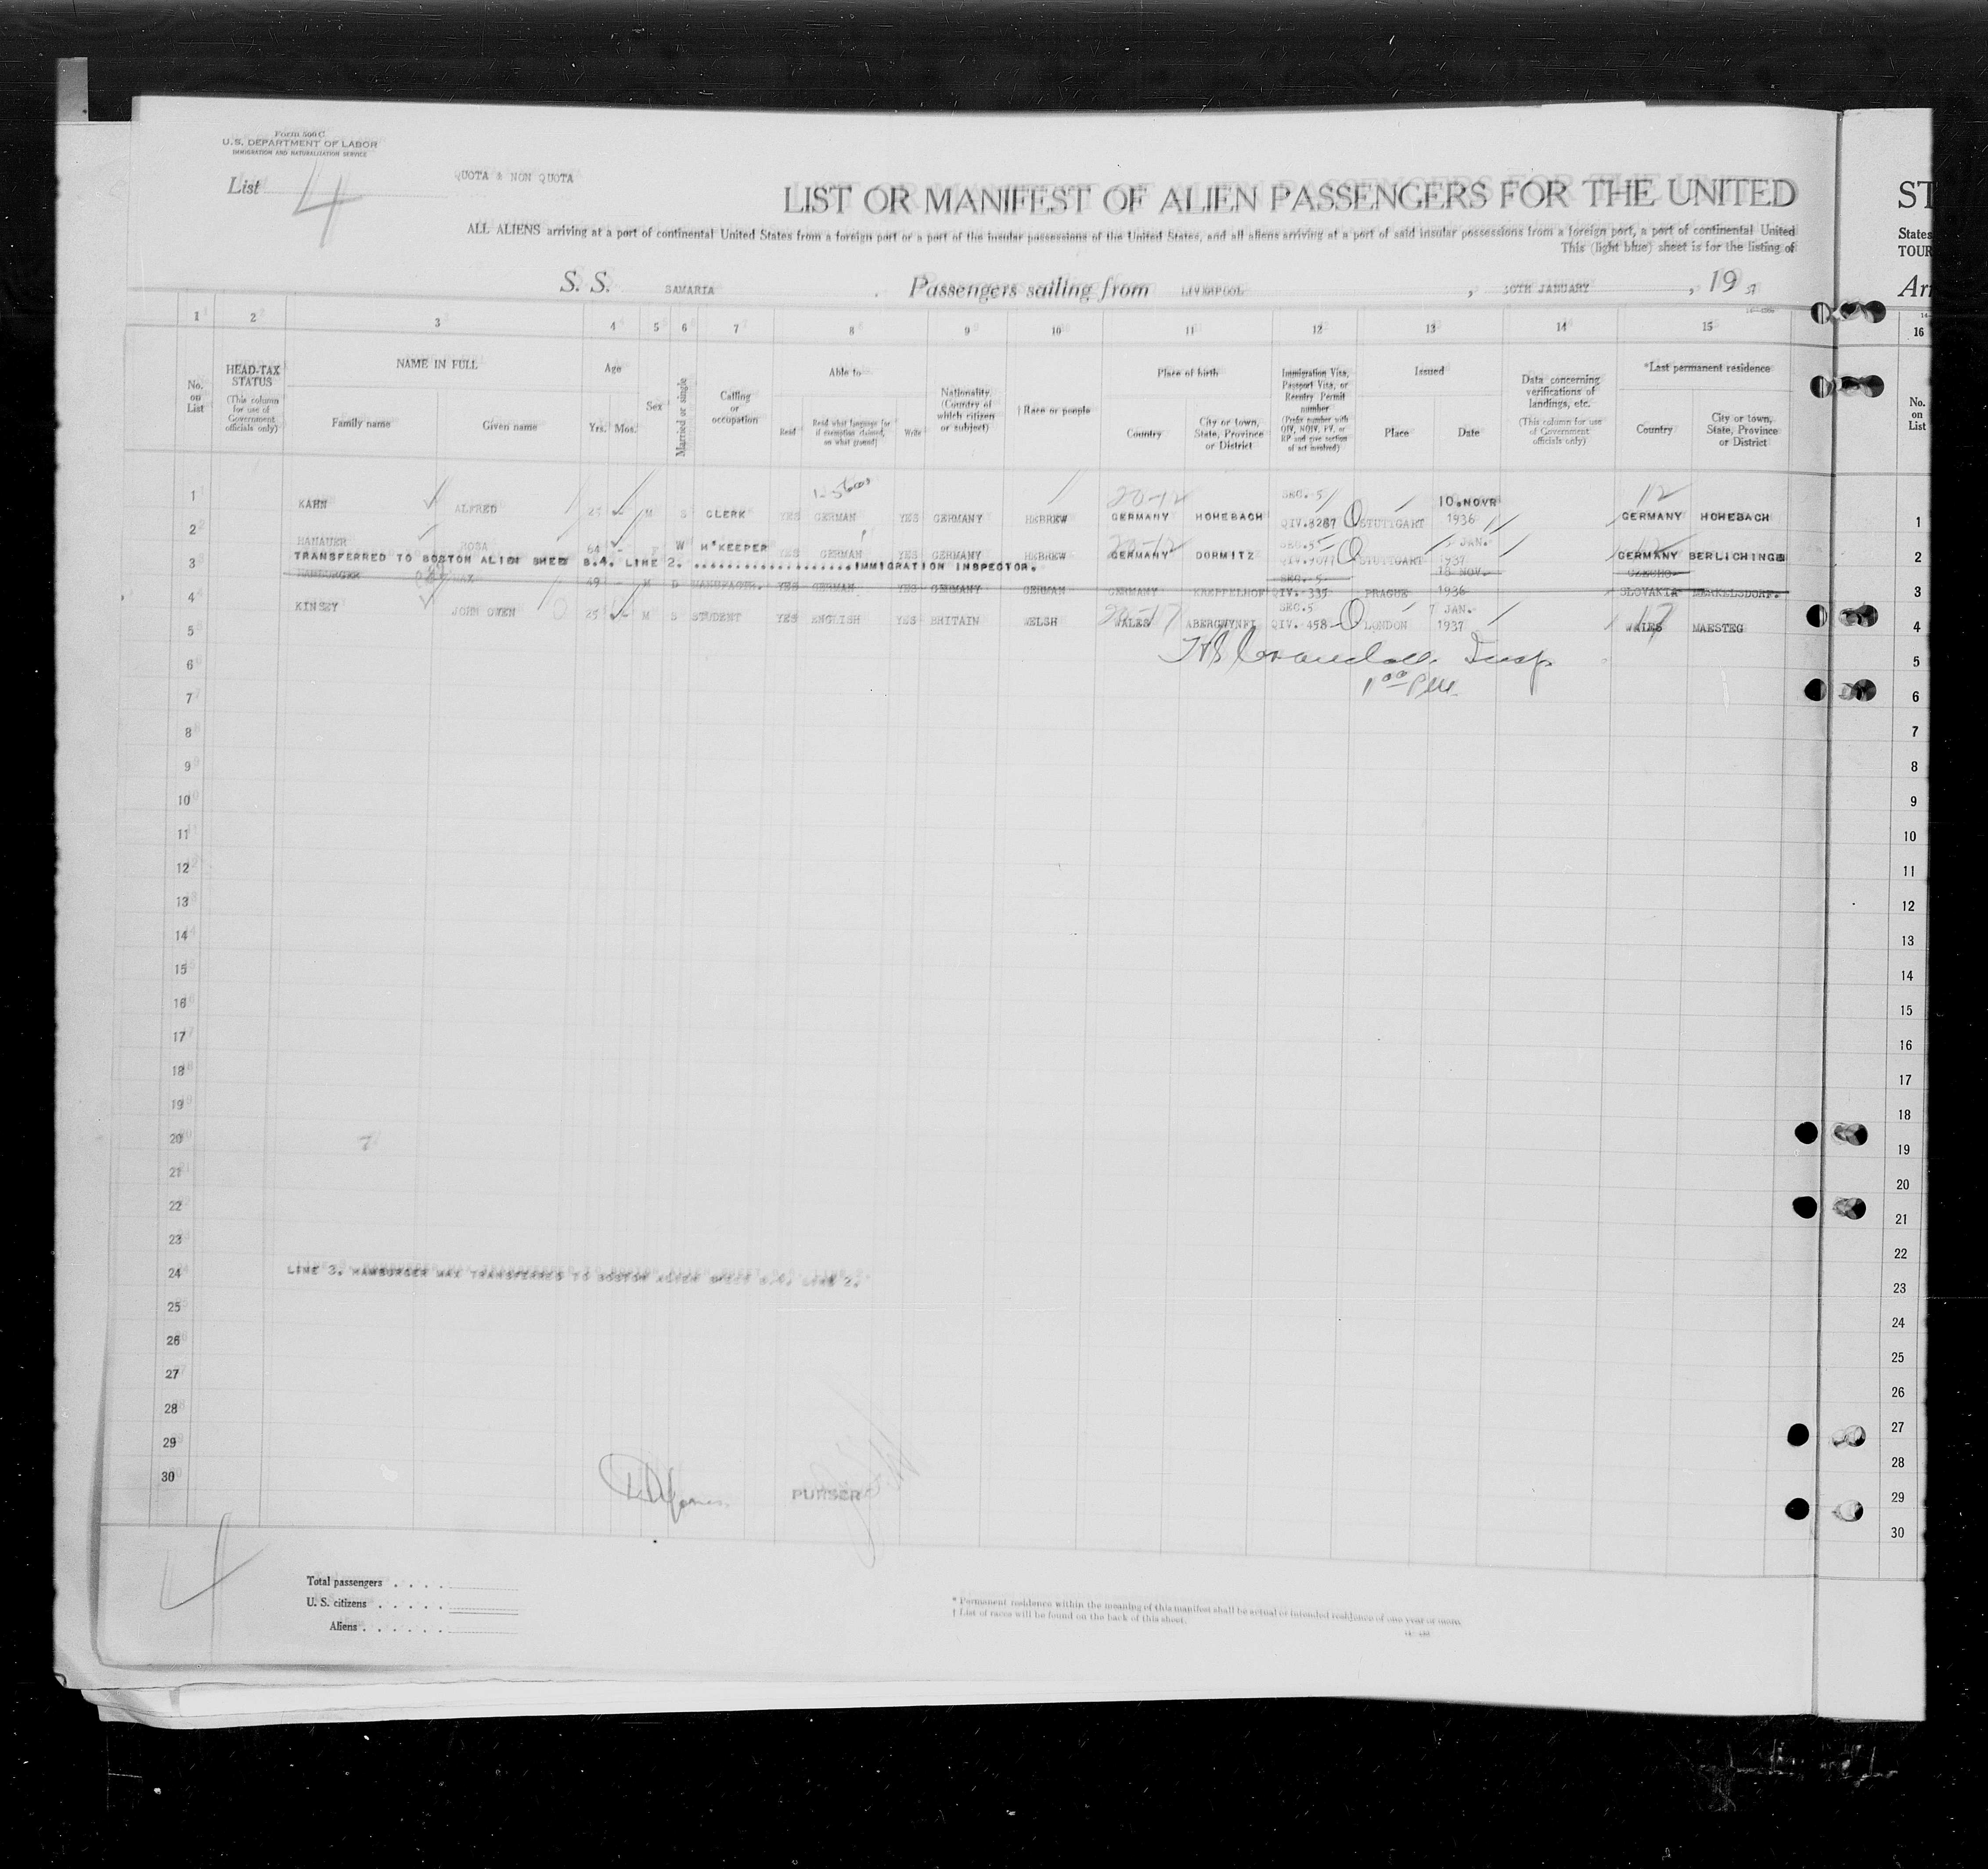 Form 500 C
U.S. DEPARTMENT OF LABOR
IMMIGRATION AND NATURALIZATION SERVICE
List 4
QUOTA & NON QUOTA
LIST OR MANIFEST OF ALIEN PASSENGERS FOR THE UNITED
ST
ALL ALIENS arriving at a port of continental United States from a foreign port or a port of the insular possessions of the United States, and all aliens arriving at a port of said insular possessions from a foreign port, a port of continental United
States
This (light blue) sheet is for the listing of
TOUR
S. S. SAMARIA Passengers sailing from LIVERPOOL , 30TH JANUARY , 19 37
Arr
1 2 3 4 5 6 7 8 9 10 11 12 13 14 15 16
No. on List
HEAD-TAX STATUS (This column for use of Government officials only)
NAME IN FULL
Family name Given name
Age
Yrs. Mos.
Sex
Married or single
Calling or occupation
Able to
Read Read what language (or if exemption claimed, on what ground) Write
Nationality. (Country of which citizen or subject)
† Race or people
Place of birth
Country City or town, State, Province or District
Immigration Visa, Passport Visa, or Reentry Permit number (Prefix number with QIV, NQIV, PV, or RP and give section of act involved)
Issued
Place Date
Data concerning verifications of landings, etc. (This column for use of Government officials only)
*Last permanent residence
Country City or town, State, Province or District
No. on List
1 KAHN ALFRED M S CLERK YES GERMAN YES GERMANY HEBREW 20-12 GERMANY HOHEBACH SEC. 5 QIV.8267 STUTTGART 10.NOVR 1936 12 GERMANY HOHEBACH 1
2 HANAUER ROSA 64 F W H'KEEPER YES GERMAN YES GERMANY HEBREW 20-12 GERMANY DORMITZ SEC.5 STUTTGART JAN. 1937 12 GERMANY BERLICHINGEN 2
TRANSFERRED TO BOSTON ALIEN SHEET B.4. LINE 2. ...................IMMIGRATION INSPECTOR.
3 HAMBURGER MAX 49 - M D MANUFACTR. YES GERMAN YES GERMANY GERMAN GERMANY KREPPELHOF SEC. 5 QIV. 335 PRAGUE 18 NOV. 1936 CZECHO-SLOVAKIA MERKELSDORF. 3
4 KINSEY JOHN OWEN 25 - M S STUDENT YES ENGLISH YES BRITAIN WELSH 20-17 WALES ABERGWYNFI SEC.5 QIV. 458 LONDON 7 JAN. 1937 17 WALES MAESTEG 4
5 Insp. 5
1 00 PM.
6 6
7 7
8 8
9 9
10 10
11 11
12 12
13 13
14 14
15 15
16 16
17 17
18 18
19 19
20 7 20
21 21
22 22
23 23
24 LINE 3. HAMBURGER MAX TRANSFERRED TO BOSTON ALIEN SHEET B.4. LINE 2. 24
25 25
26 26
27 27
28 28
29 29
30 30
PURSER
4
Total passengers . . . .
U. S. citizens . . . . .
Aliens . . . . . .
* Permanent residence within the meaning of this manifest shall be actual or intended residence of one year or more.
† List of races will be found on the back of this sheet.